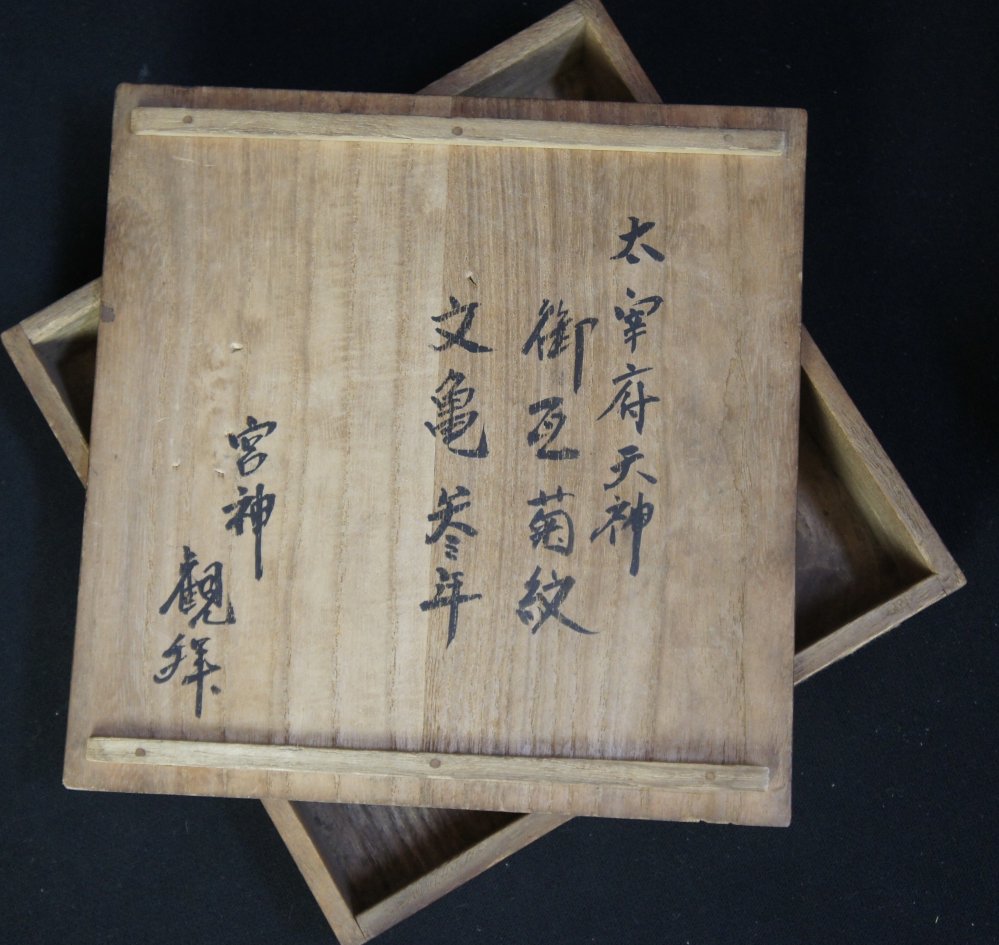 太宰府天神
御瓦菊紋
文亀参年
宮神
観拝